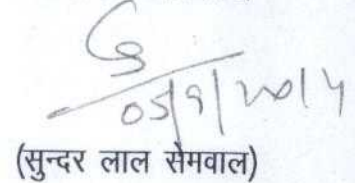 05/9/2014
(सुन्दर लाल सेमवाल)